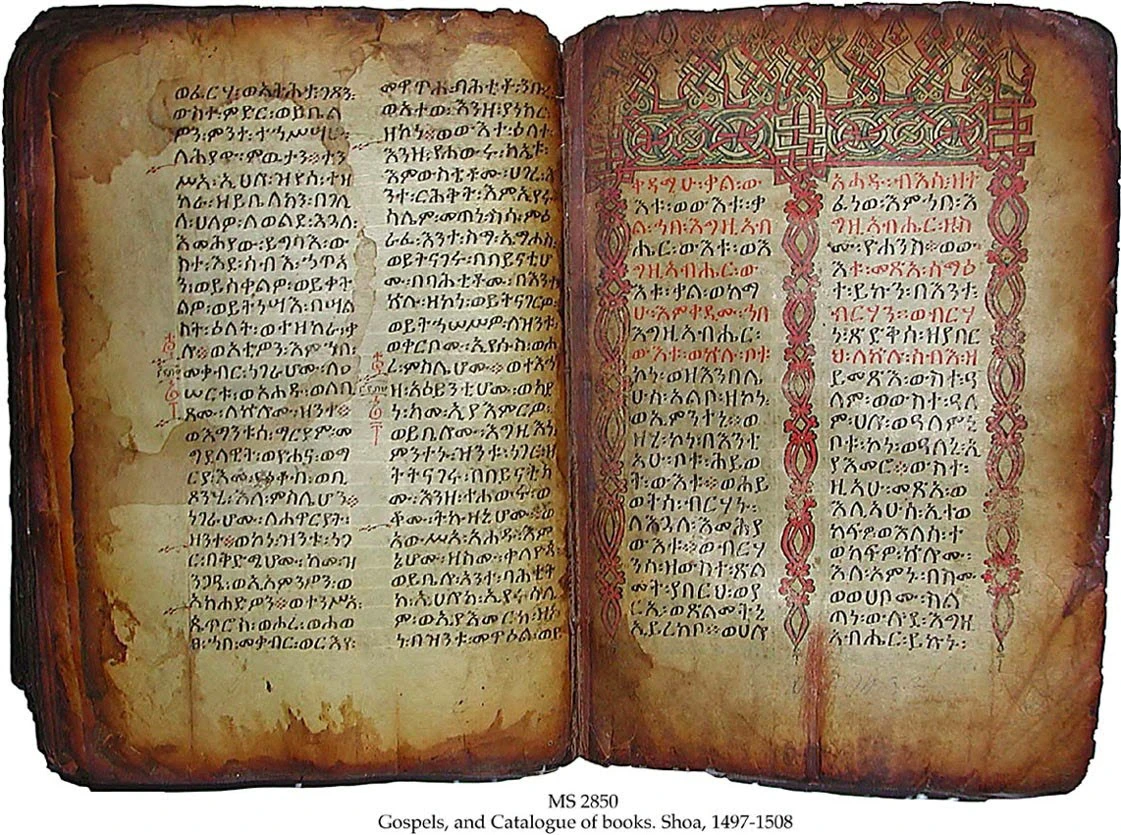 ወፈርሃ፡ወአትሐታ፡ገጾን፡
ውስተ፡ምድር፡ወይቤል
ዎን፡ምንተ፡ተኀሥሣሁ፡
ለሕያው፡ምዉተን።ተን
ሥአ፡ኢሀሎ፡ዝየሰ፡ተዘ
ከራ፡ዘይቤለክን፡በገሊ
ላ፡ሀለዎ፡ለወልደ፡እጓለ፡
እመሕያው፡ይግባእ፡ው
ስተ፡እደ፡ሰብእ፡ኃጥኣ
ን፡ወይሰቀልዎ፡ወይቀት
ልዎ፡ወይትነሣእ፡በሣል
ስት፡ዕለት፡ወተዘከራ፡ቃ
ሎ።ወአቲዎን፡እምኀበ፡
መቃብር፡ነገራሆሙ፡ለዐ
ሠርቱ፡ወአሐዱ፡ወለቢ
ጾሙ፡ለኵሎሙ፡ዝንተ።
ወእማንቱሰ፡ማርያም፡መ
ግደላዊት፡ወዮሐና፡ወማ
ርያ፡እመ፡ያዕቆብ፡ወቢ
ጾንሂ፡እለ፡ምስሌሆን።
ነገራሆሙ፡ለሐዋርያት፡
ዘንተ።ወኮነ፡ዝንቱ፡ነገ
ር፡በቅድሜሆሙ፡ከመ፡ዝ
ንጋዔ፡ወኢአምንዎን፡ወ
አክሐድዎን።ወተንሥአ፡
ጴጥሮስ፡ወሖረ፡ወሖወ
ፀ፡ኀበ፡መቃብር፡ወርእየ፡
መዋጥሐ፡ባሕቲቶ፡ንቡ
ወአተወ፡እንዘ፡ያነክር፡
ዘኮነ።ወውእተ፡ዕለተ፡
እንዘ፡የሐውሩ፡ክልኤቱ፡
እምውስቴቶሙ፡ሀገረ፡እ
ንተ፡ርሕቅት፡እምኢየሩ
ሳሌም፡መጠነ፡ስሳ፡ምዕ
ራፈ፡እንተ፡ስማ፡ኤማሁስ
ወይትናገሩ፡በበይናቲሆ
ሙ፡በባሕቲቶሙ፡በእንተ
ኵሉ፡ዘኮነ፡ወይትናገርዎ
ወይትኀሠሥዎ፡ለዝንቱ፡
ወቀርቦሙ፡ኢየሱስ፡ወሖ
ረ፡ምስሌሆሙ።ወተእኅ
ዘ፡አዕይንቲሆሙ፡
ነ፡ከመ፡ኢያእምርዎ፡
ወይቤሎሙ፡እግዚእነ
ምንተኑ፡ዝንቱ፡ነገር፡ዘ
ትትናገሩ፡በበይናቲክ
ሙ፡እንዘ፡ተሐውሩ፡ወ
ቆሙ፡ትኩዛኒሆሙ።ወ
አውሥአ፡አሐዱ፡እም
ኔሆሙ፡ዘስሙ፡ቀለዮጳ
ወይቤሎ፡አንተ፡ባሕቲት
ከ፡ኢሀሎከ፡ኢየሩሳሌ
ም፡ወኢያእመርከ፡ዘኮ
ነ፡በዝንቱ፡መዋዕል፡ወይ
ቀዳሚሁ፡ቃል፡ው
እቱ፡ወውእቱ፡ቃ
ል፡ኀበ፡እግዚአብ
ሔር፡ውእቱ፡ወእ
ግዚአብሔር፡ው
እቱ፡ቃል፡ወከማ
ሁ፡እምቀዳሙ፡ኀበ
እግዚአብሔር፡
ውእቱ፡ወኵሉ፡ቦቱ፡
ኮነ፡ወዘእንበሌ
ሁሰ፡አልቦ፡ዘኮነ፡
ወኢምንተኒ።ወ
ዘሂ፡ኮነ፡በእንቲ
አሁ፡ቦቱ፡ሕይወ
ት፡ውእቱ።ወሕይ
ወትሰ፡ብርሃኑ፡
ለእጓለ፡እመሕያ
ውእቱ።ወብርሃ
ንሰ፡ዘውስተ፡ጽል
መት፡ያበርህ፡ወያ
ርኢ፡ወጽልመትኒ
ኢይረክቦ።ወሀሎ
አሐዱ፡ብእሲ፡ዘተ
ፈነወ፡እምኀበ፡እ
ግዚአብሔር፡ዘስ
ሙ፡ዮሐንስ።ወው
እቱ፡መጽአ፡ስማዕ
ተ፡ይኩን፡በእንተ፡
ብርሃን።ወብርሃ
ነ፡ጽድቅሰ፡ዘያበር
ህ፡ለኵሉ፡ሰብእ፡ዘ
ይመጽእ፡ውስተ፡ዓ
ለም፡ወውስተ፡ዓለ
ም፡ሀሎ፡ወዓለምኒ
ቦቱ፡ኮነ፡ወዓለሰ፡ኢ
ያእመሮ።ውስተ፡
ዚአሁ፡መጽአ፡ወ
እሊአሁሰ፡ኢተወ
ክፍዎ፡ወእለሰ፡ተ
ወከፍዎ፡ኵሎሙ፡
እለ፡አምኑ፡በስሙ
ወወሀቦሙ፡ሥል
ጣነ፡ውሉደ፡እግዚ
አብሔር፡ይኩኑ፡
MS 2850
Gospels, and Catalogue of books. Shoa, 1497-1508